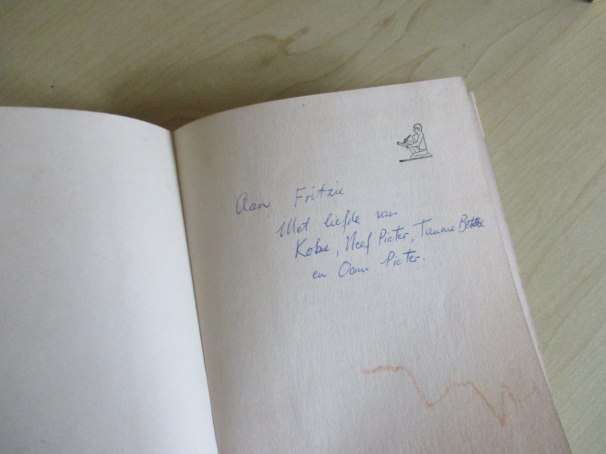 Aan Fritzie
Met liefde van
Kobie, Neef Pieter, Tannie
en Oom Pieter.